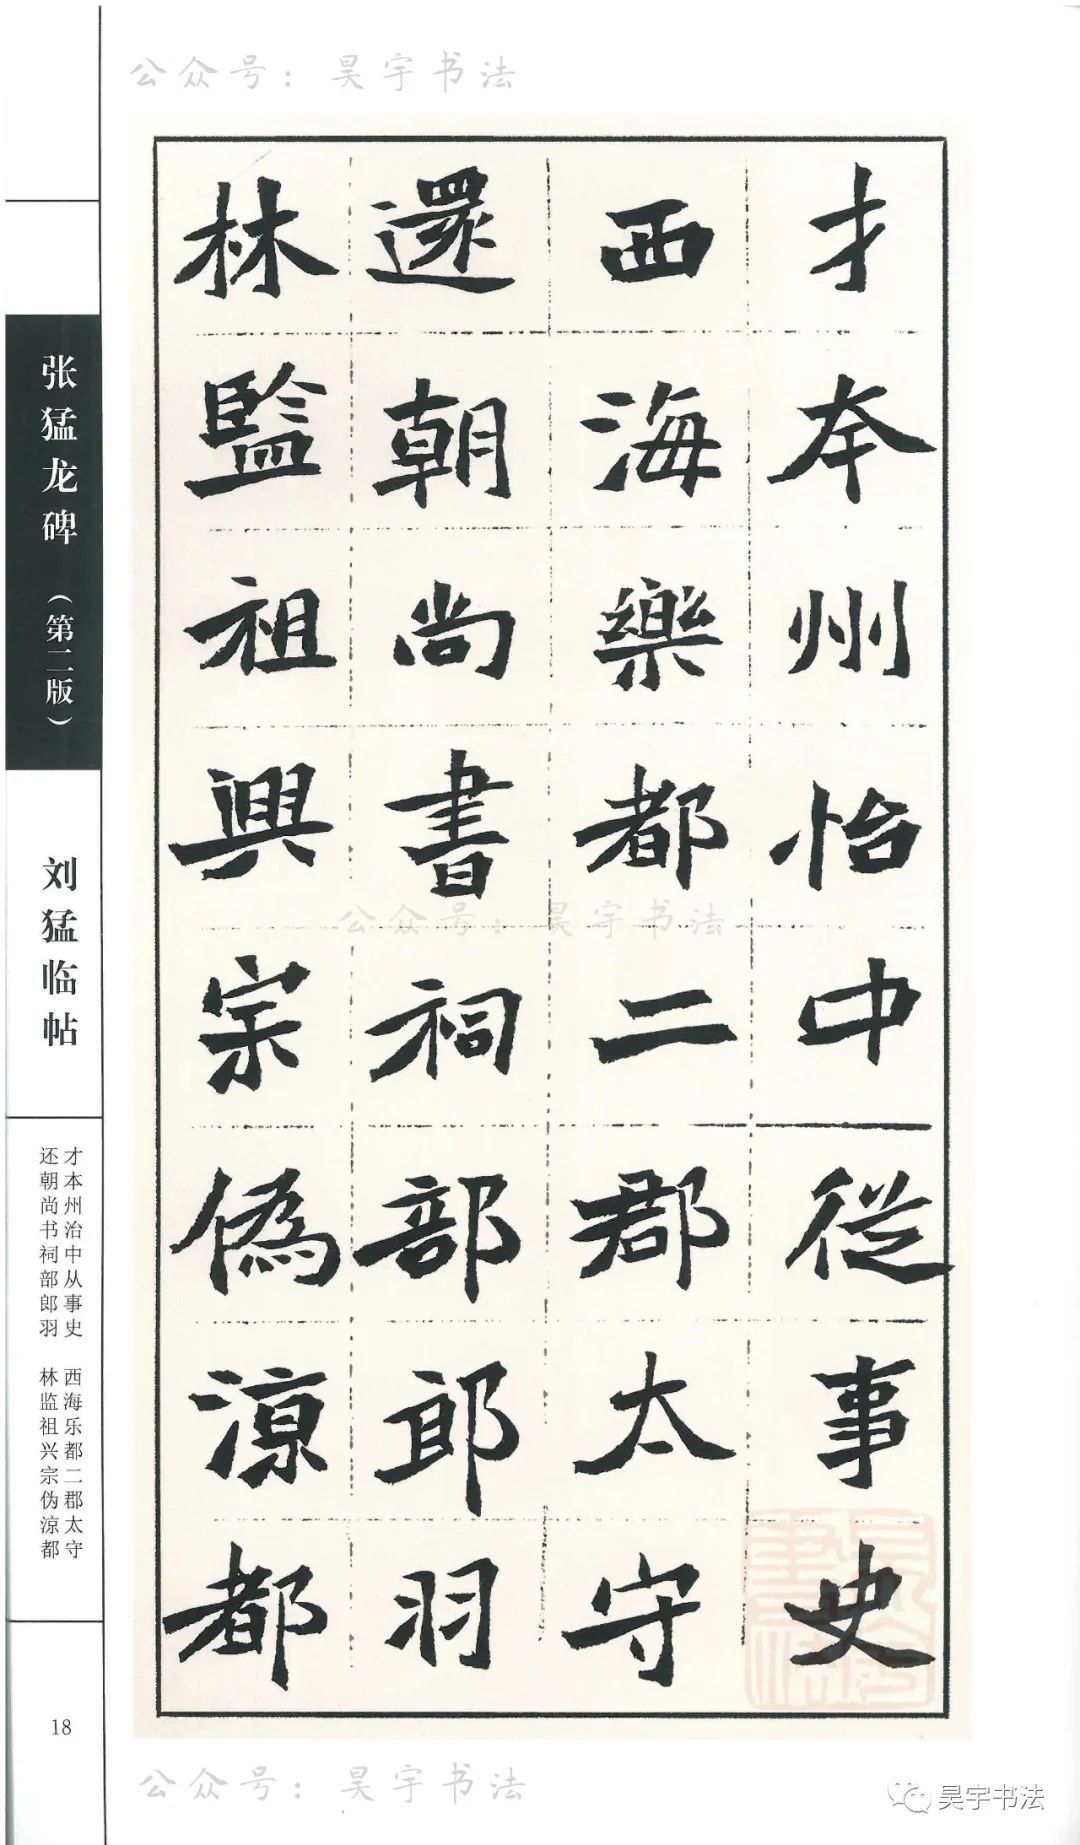 公众号：昊宇书法
才夲州怡中從事史
西海樂都二郡太守
還朝尚書祠部郎羽
林監祖興宗偽涼都
公众号：昊宇书法
张猛龙碑（第二版）
刘猛临帖
才本州治中从事史　西海乐都二郡太守
还朝尚书祠部郎羽　林监祖兴宗伪涼都
18
公众号：昊宇书法
昊宇书法